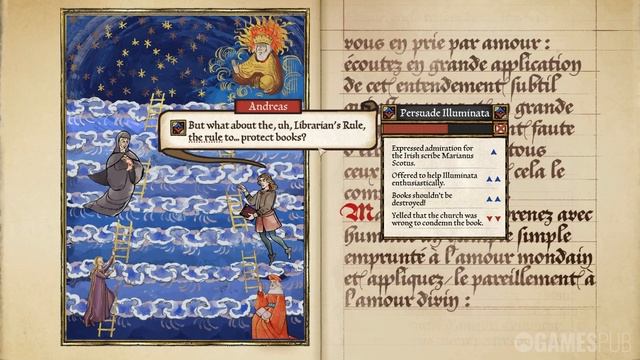 Andreas
But what about the, uh, Librarian's Rule,
the rule to... protect books?
Persuade Illuminata
Expressed admiration for
the Irish scribe Marianus
Scotus.
Offered to help Illuminata
enthusiastically.
Books shouldn't be
destroyed!
Yelled that the church was
wrong to condemn the book.
vous en prie par amour :
écoutez en grande application
de cet entendement subtil
grande
faute
tous
ceux
cela le
com
prenez avec
hum simple
emprunte à l'amour mondain
et appliquez le pareillement à
l'amour divin :
GAMESPUB